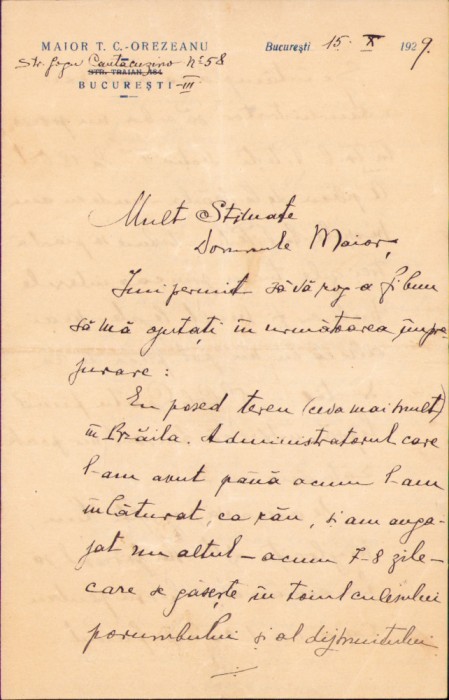 MAIOR T. C.-OREZEANU
București 15 X 1929.
Str. Gogu Cantacuzino No 58
STR. TRAIAN, 154
BUCUREȘTI-III
Mult Stimate
Domnule Maior,
Îmi permit să vă rog a fi bun
să mă ajutați în următoarea împre
jurare:
Eu posed teren (ceva mai mult)
în Brăila. Administratorul care
l-am avut până acum l-am
înlăturat, ca rău, și am anga-
jat un altul - acum 7-8 zile -
care se găsește în toiul culesului
porumbului și al dijmuitului